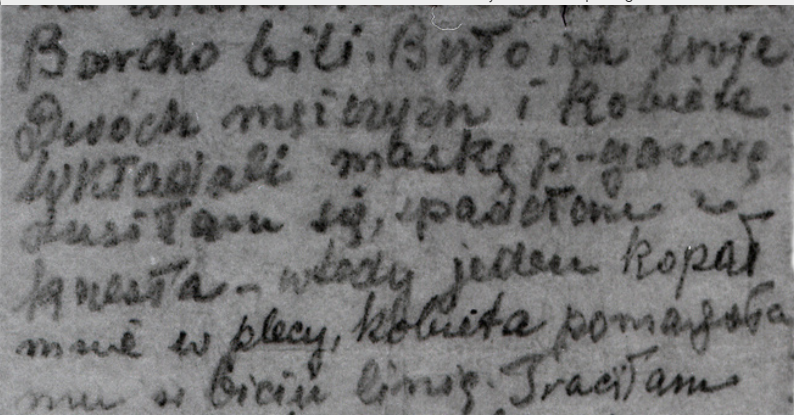 Bardzo bili. Było ich troje
Dwóch mężczyzn i kobieta.
Wkładali maskę p-gazową
dusiłam się, spadałam z
krzesła - wtedy jeden kopał
mnie w plecy, kobieta pomagała
mu w biciu linią. Traciłam